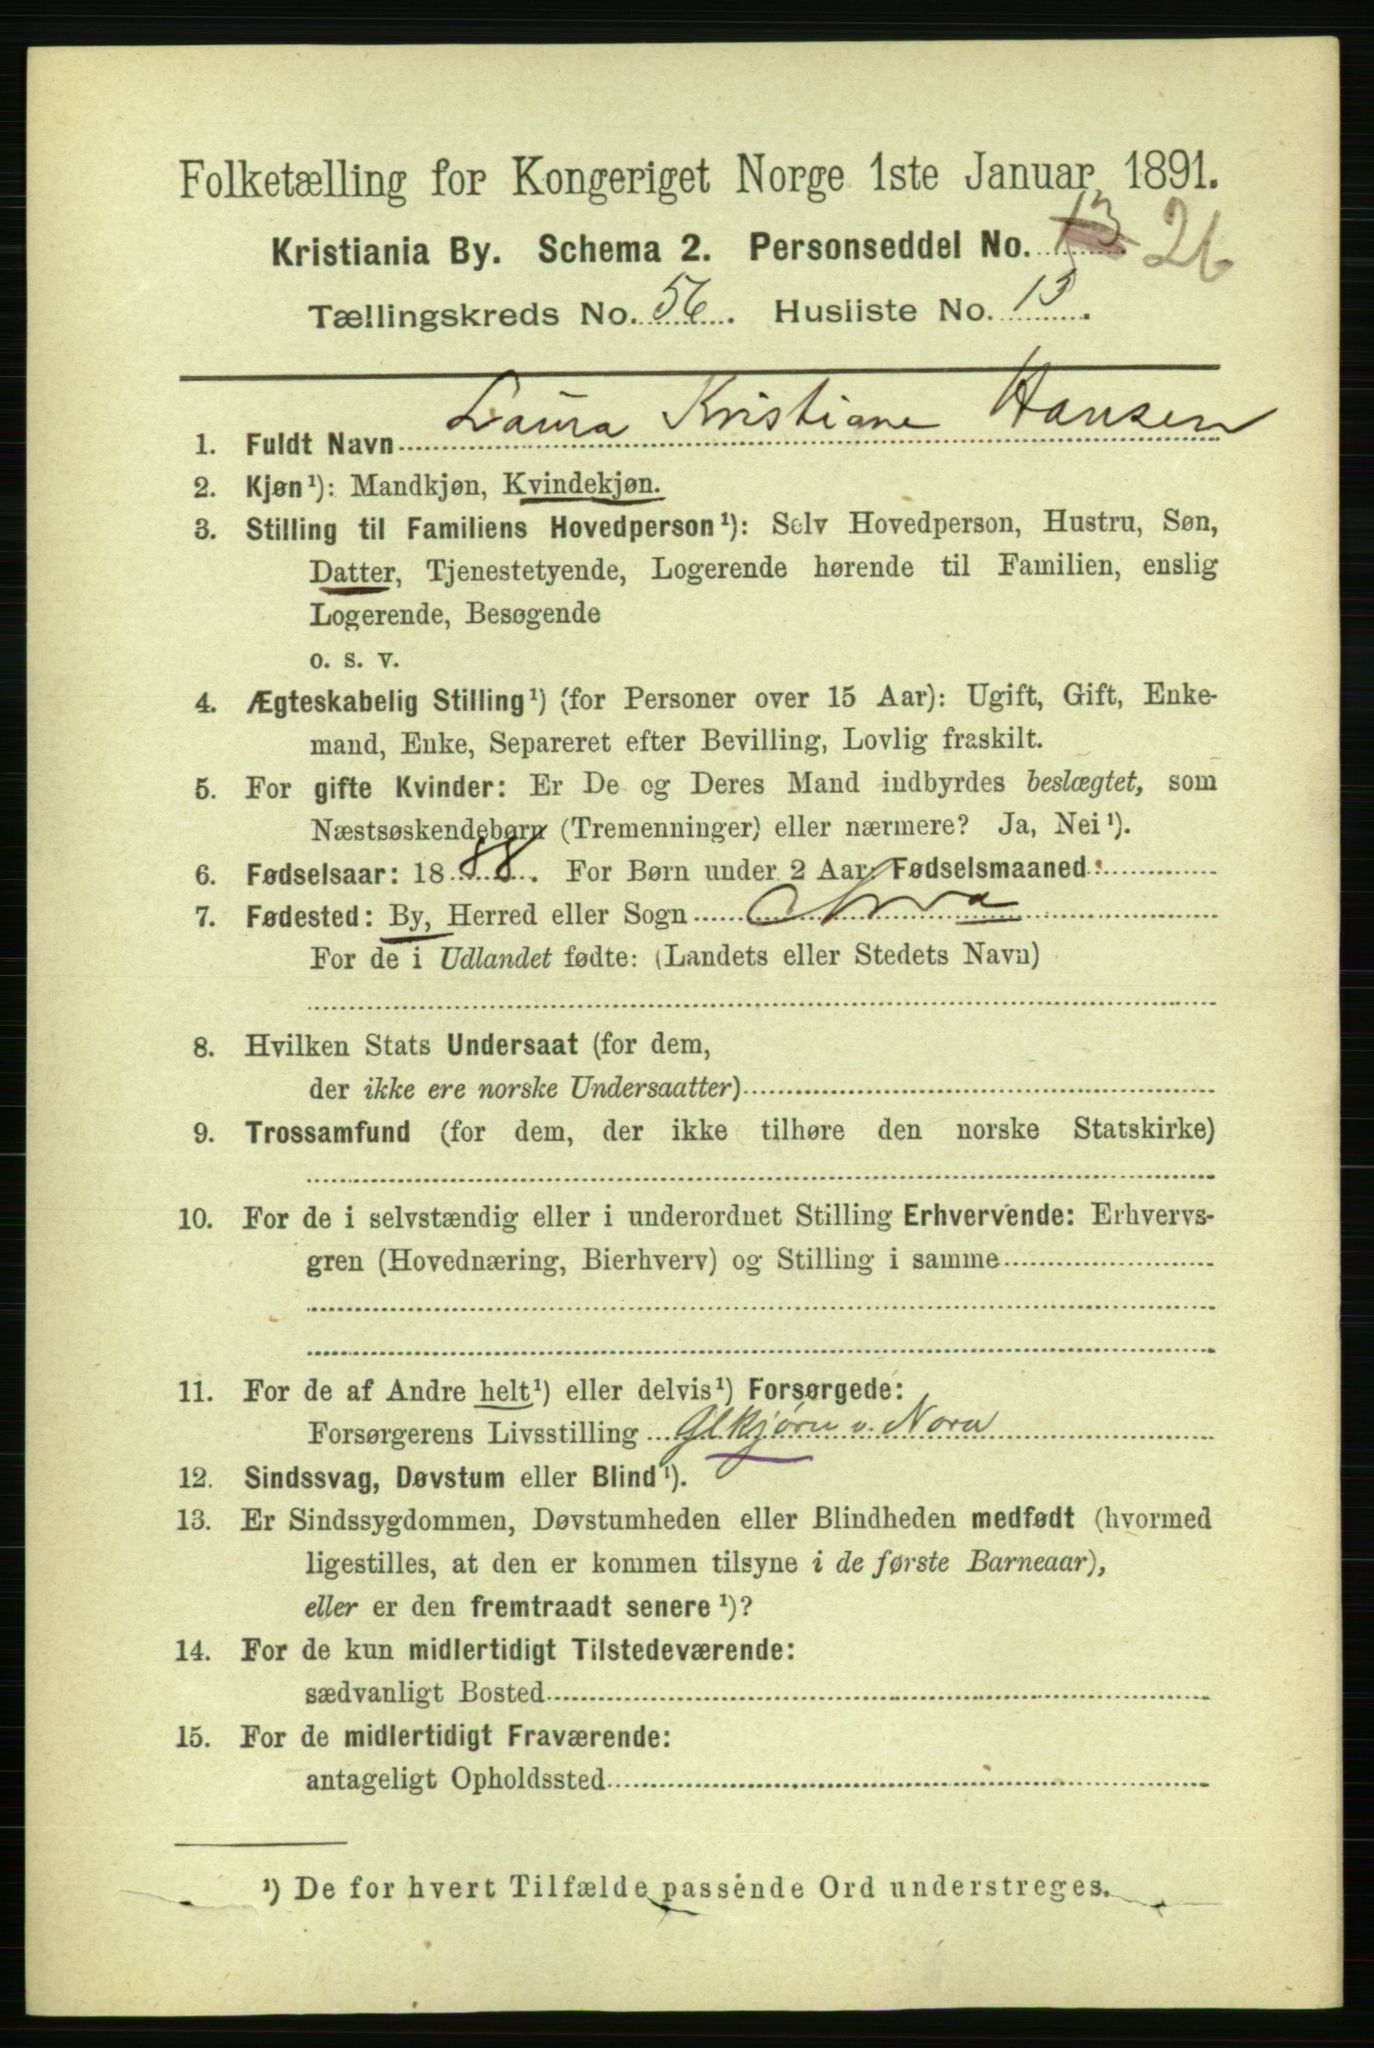 Folketælling for Kongeriget Norge 1ste Januar 1891.
Kristiania By. Schema 2. Personseddel No. 13 26
Tællingskreds No. 56. Husliste No. 13.
1. Fuldt Navn Laura Kristiane Hansen
2. Kjøn¹): Mandkjøn, Kvindekjøn.
3. Stilling til Familiens Hovedperson¹): Selv Hovedperson, Hustru, Søn,
Datter, Tjenestetyende, Logerende hørende til Familien, enslig
Logerende, Besøgende
o. s. v.
4. Ægteskabelig Stilling¹) (for Personer over 15 Aar): Ugift, Gift, Enke-
mand, Enke, Separeret efter Bevilling, Lovlig fraskilt.
5. For gifte Kvinder: Er De og Deres Mand indbyrdes beslægtet, som
Næstsøskendebørn (Tremenninger) eller nærmere? Ja, Nei¹).
6. Fødselsaar: 1888. For Børn under 2 Aar: Fødselsmaaned:
7. Fødested: By, Herred eller Sogn Chra
For de i Udlandet fødte: (Landets eller Stedets Navn)
8. Hvilken Stats Undersaat (for dem,
der ikke ere norske Undersaatter)
9. Trossamfund (for dem, der ikke tilhøre den norske Statskirke)
10. For de i selvstændig eller i underordnet Stilling Erhvervende: Erhvervs-
gren (Hovednæring, Bierhverv) og Stilling i samme
11. For de af Andre helt¹) eller delvis¹) Forsørgede:
Forsørgerens Livsstilling v. Nora
12. Sindssvag, Døvstum eller Blind¹).
13. Er Sindssygdommen, Døvstumheden eller Blindheden medfødt (hvormed
ligestilles, at den er kommen tilsyne i de første Barneaar),
eller er den fremtraadt senere¹)?
14. For de kun midlertidigt Tilstedeværende:
sædvanligt Bosted
15. For de midlertidigt Fraværende:
antageligt Opholdssted
¹) De for hvert Tilfælde passende Ord understreges.